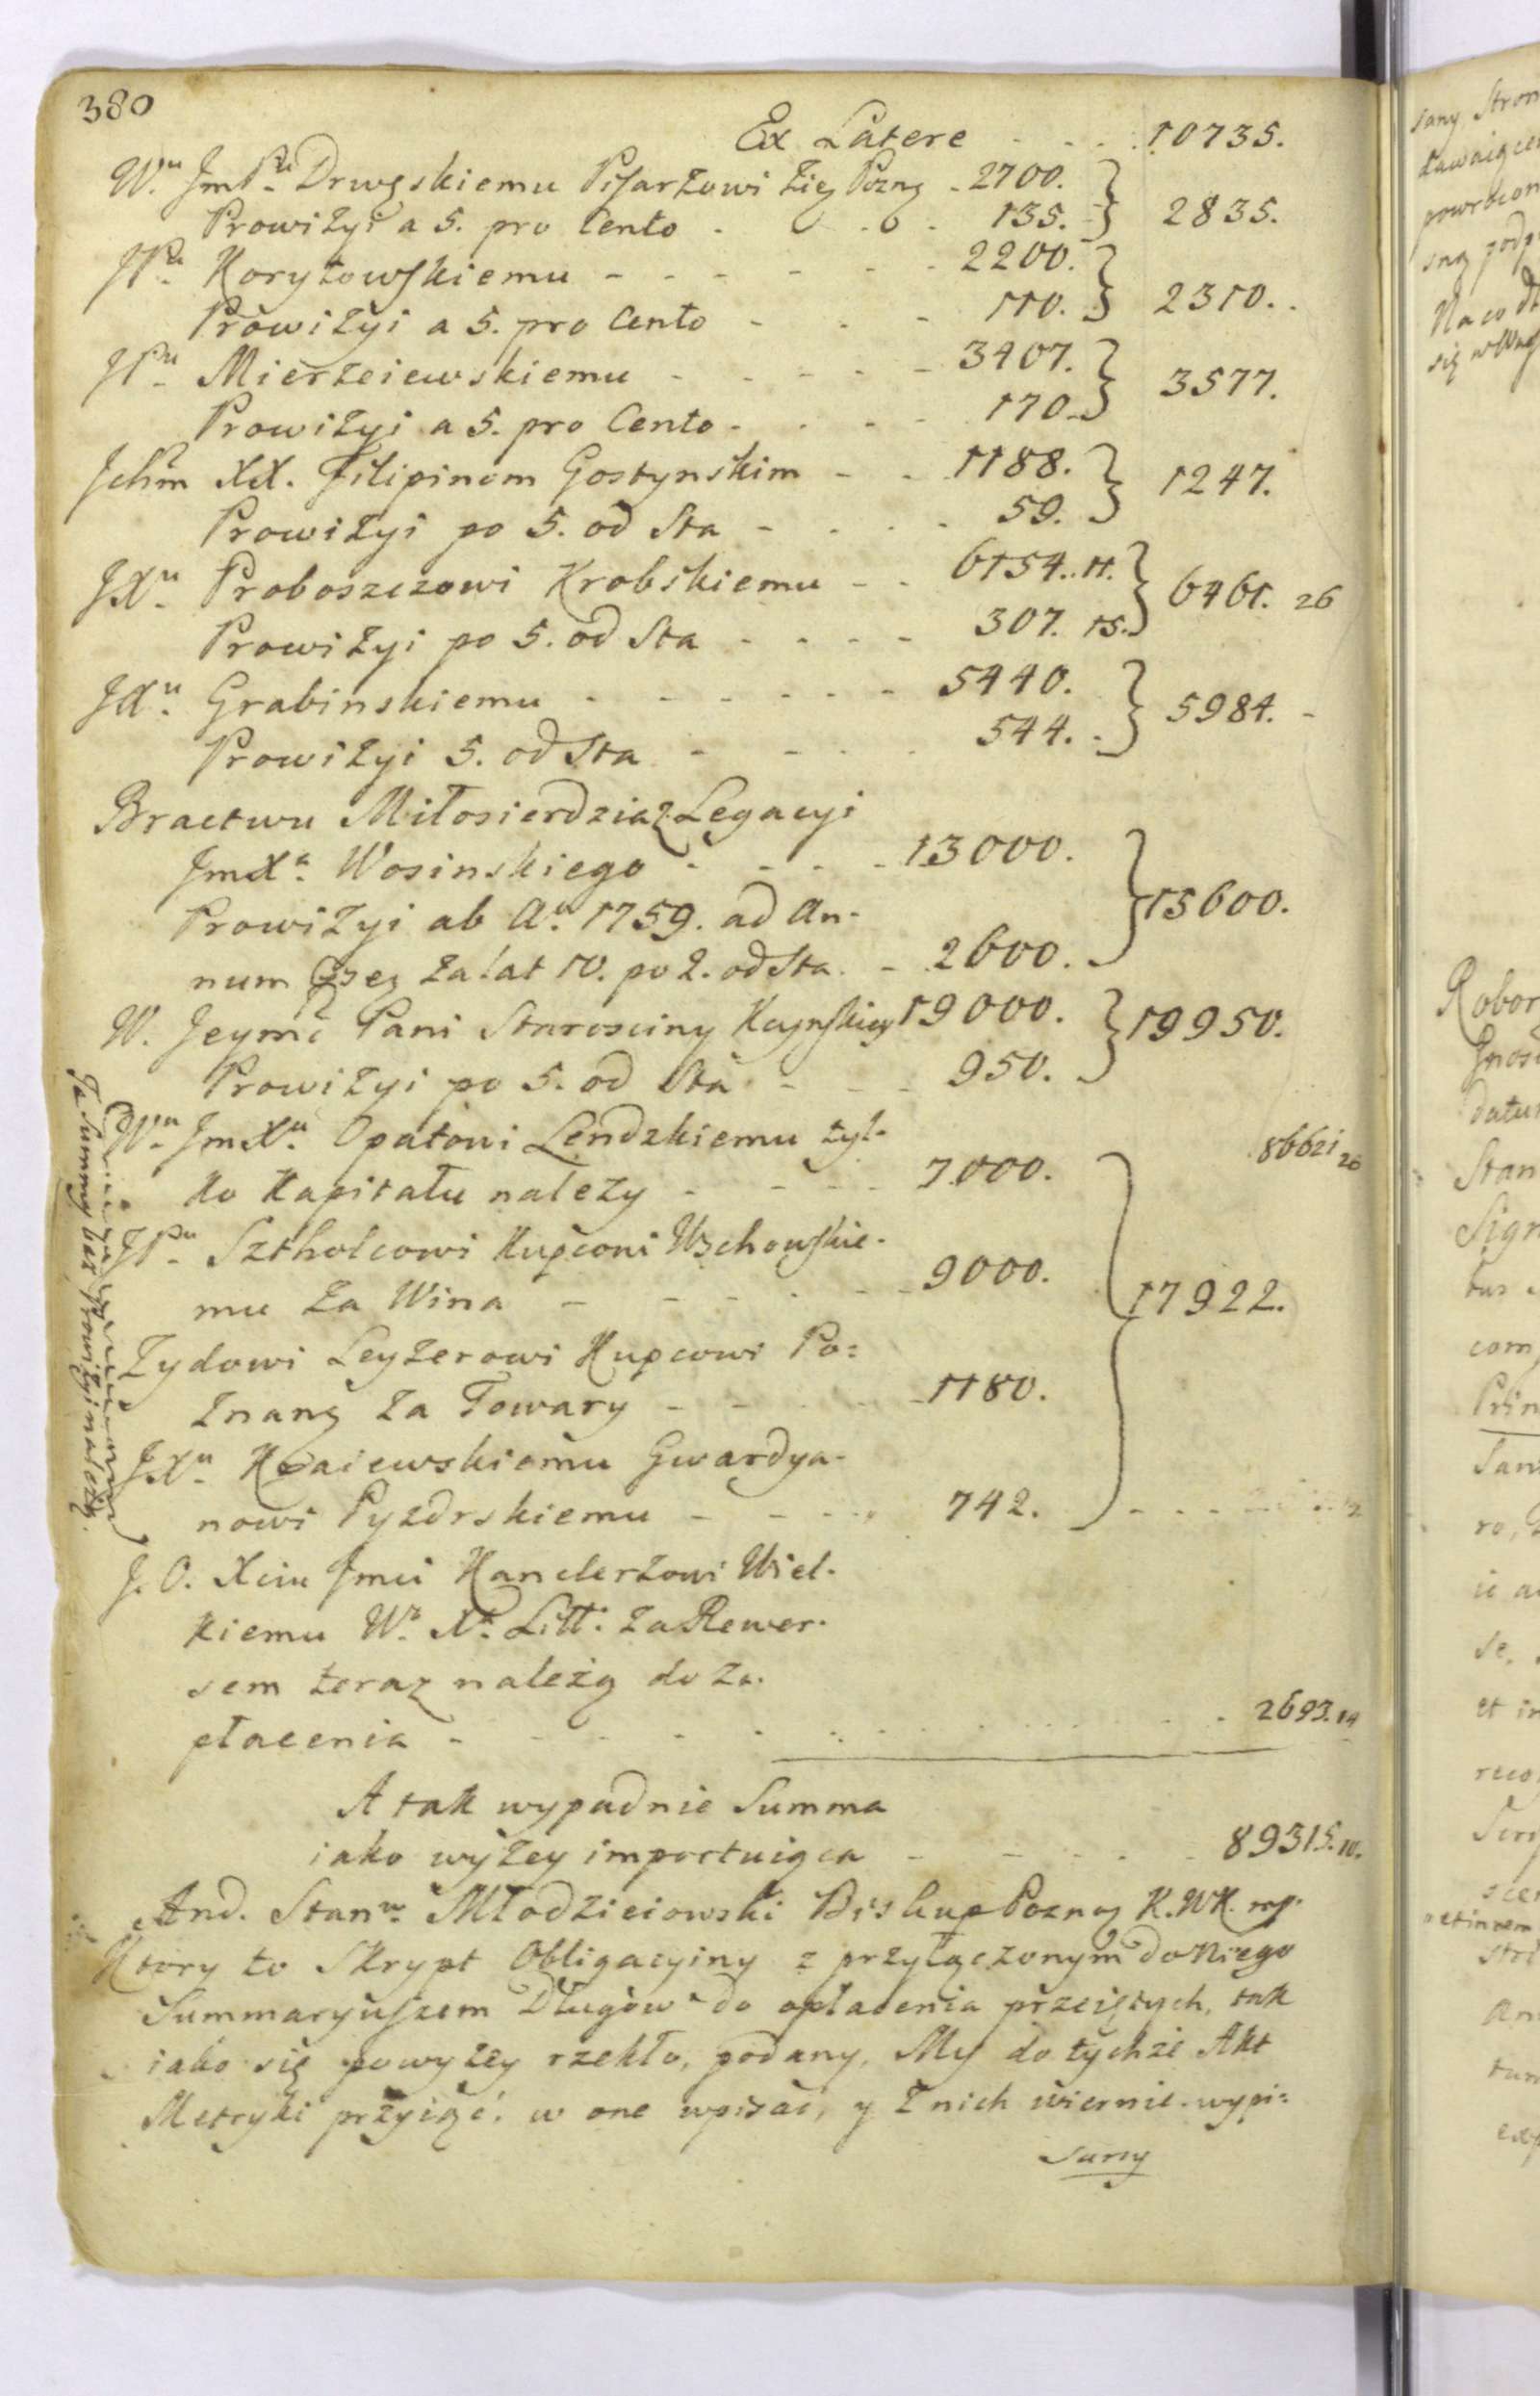 380
Ex Latere - - - 10735.
W.u JmP.u Drwęskiemu Pisarzowi Zię Pozng - 2700.
Prowizyi a 5. pro Cento - - - 135. 2835.
JP.u Korytowskiemu - - - - - 2200.
Prowizyi a 5. pro Cento - - - 110. 2310.
JP.u Mierzeiewskiemu - - - - - 3407.
Prowizyi a 5. pro Cento - - - - 170. 3577.
Jchm XX. Filipinom Gostynskim - - 1188.
Prowizyi po 5. od Sta - - - - 59. 1247.
JX.u Proboszczowi Krobskiemu - - 6154. 11.
Prowizyi po 5. od Sta - - - - 307. 15. 6461. 26
JX.u Grabinskiemu - - - - - - 5440.
Prowizyi 5. od Sta - - - - 544. 5984. -
Bractwu Miłosierdzia z Legacyi
JmX.a Wosinskiego - - - - 13000.
Prowizyi ab A.o 1759. ad An-
num za lat 10. po 2. od Sta. - 2600. 15600.
W. Jeymć Pani Starosciny Kcynskiey 19000.
Prowizyi po 5. od Sta - - - 950. 19950.
W.u JmX.u Opatowi Lendzkiemu tyl-
ko Kapitału należy - - - - 7000. 86621 26
JP.u Sztholcowi Kupcowi Wschowskie-
mu za Wina - - - - - - 9000.
17922.
Zydowi Leyzerowi Kupcowi Po=
znang za Towary - - - - - 1180.
JX.u Kraiewskiemu Gwardya-
nowi Pyzdrskiemu - - - - 742. - - -
Te Summy bez Prowizyi należą.
J. O. Xciu Jmci Kanclerzowi Wiel-
kiemu W.o X.a Litt: za Rewer-
sem teraz należą do za-
płacenia - - - - - - - - - - 2693. 14
A tak wypadnie Summa
iako wyżey importuiąca - - - - - 89315. 10.
And. Stanw. Młodzieiowski Biskup Poznąg K.WK. mp.
Ktory to Skrypt Obligacyiny z przyłączonym do niego
Summaryuszem Długów do opłacenia przeiętych, tak
iako się powyżey rzekło, podany, My do tychże Akt
Metryki przyiąć, w one wpisać, y z nich wiernie wypi=
sany